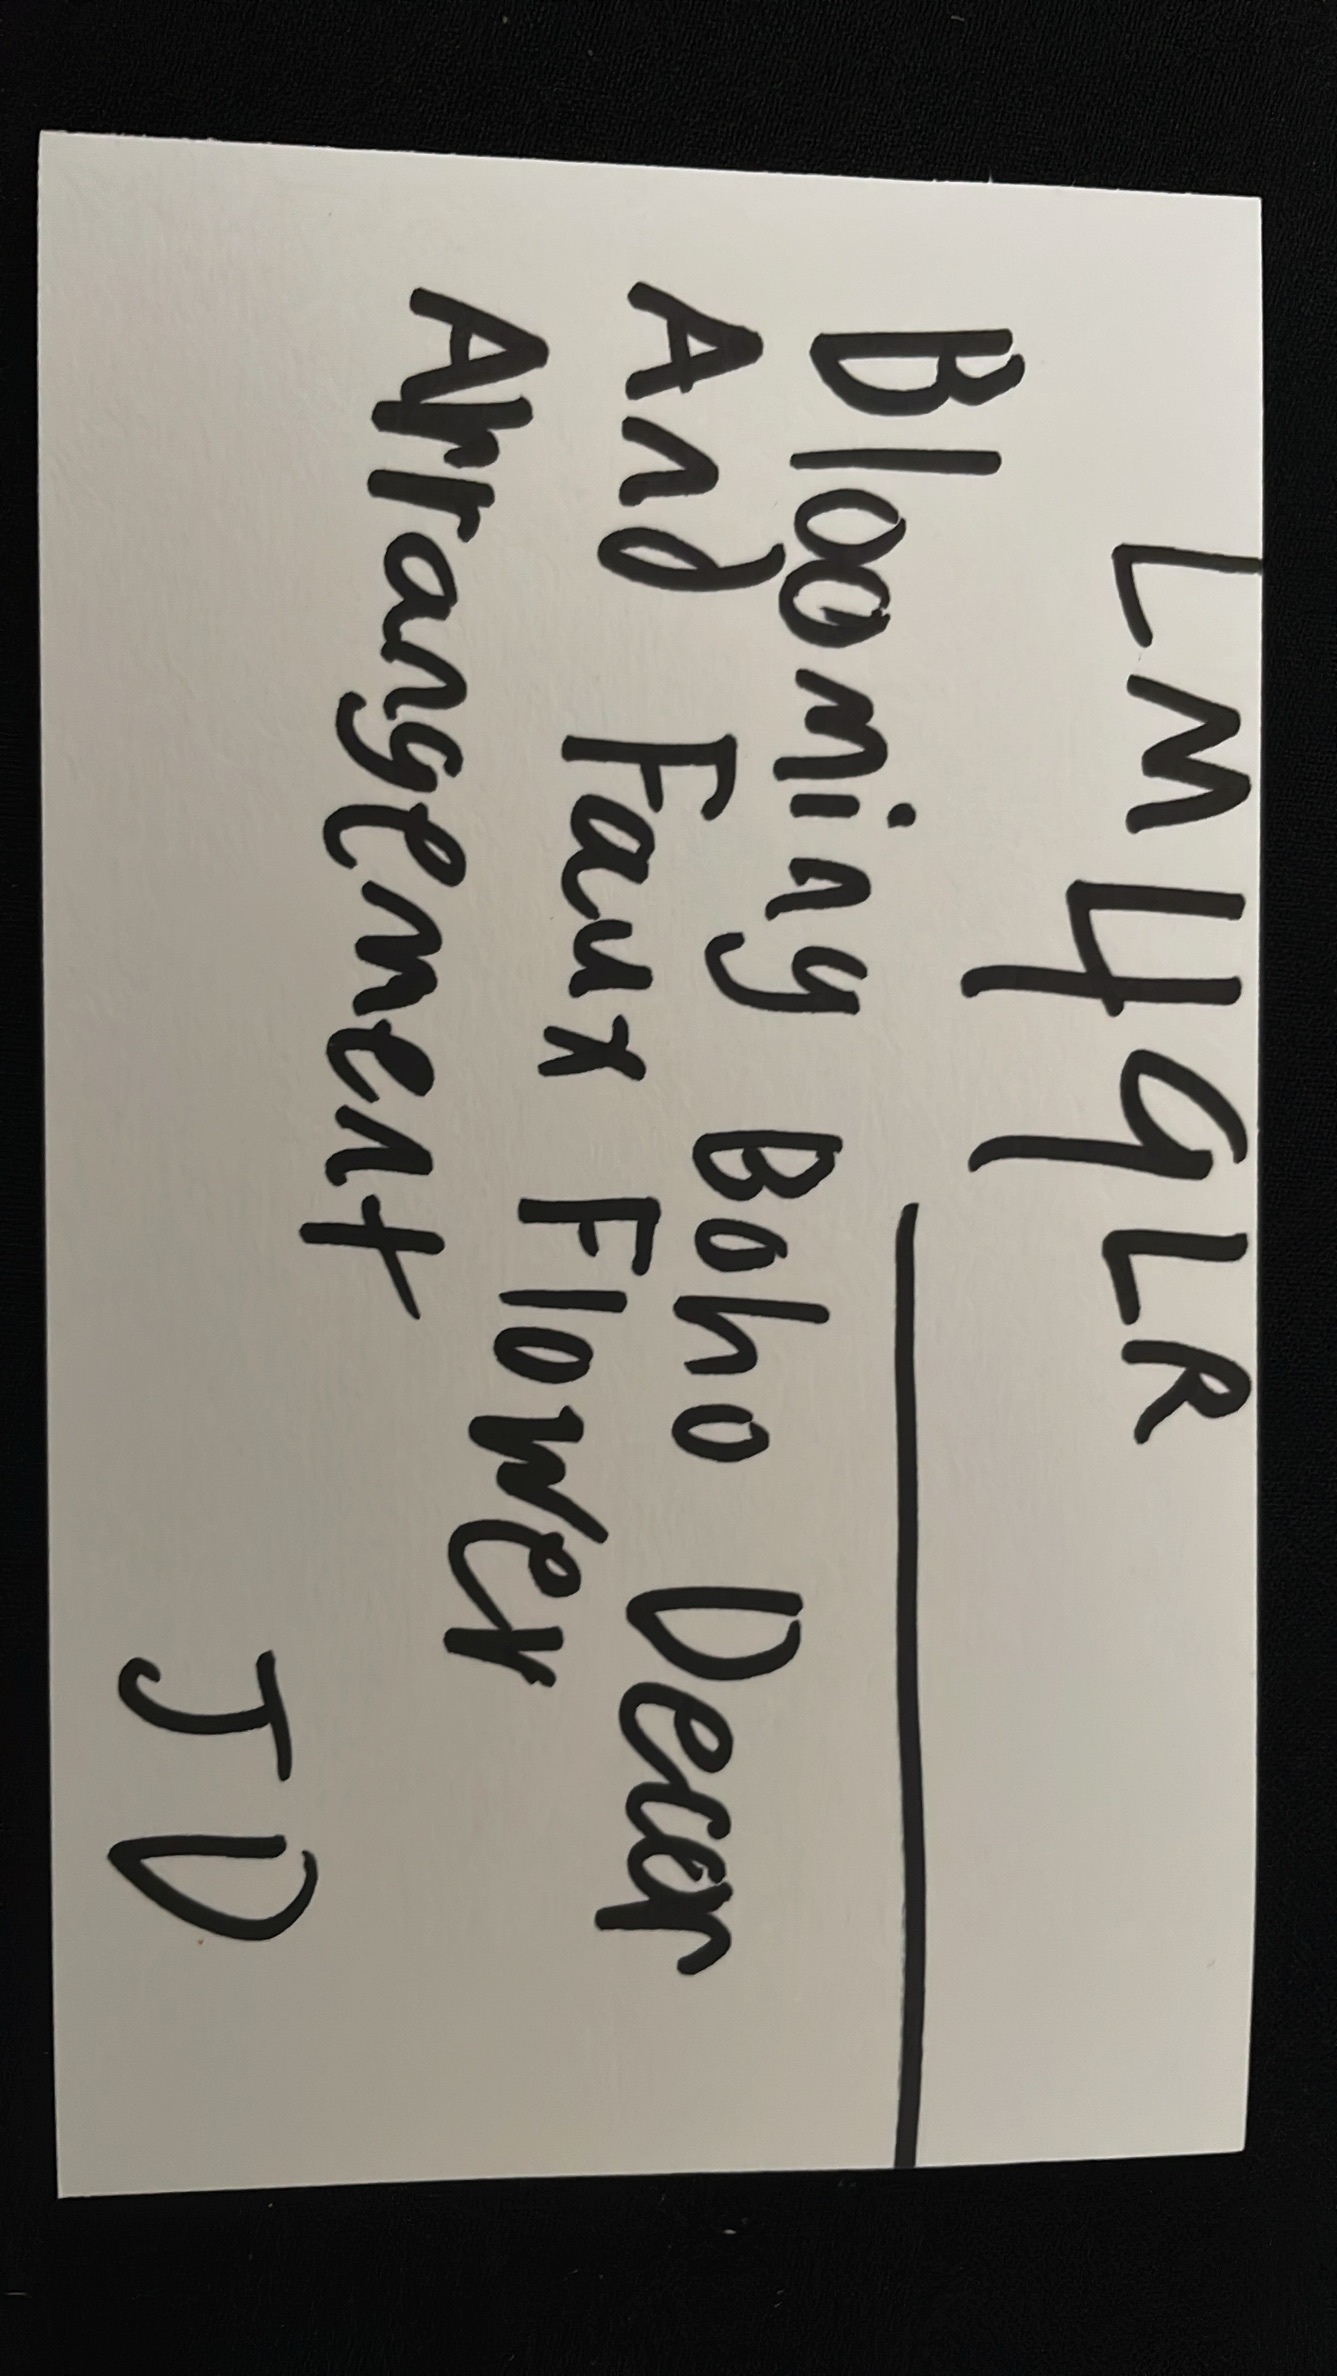 LM49LR
Blooming Boho Decor
And Faux Flower
Arrangement
JD